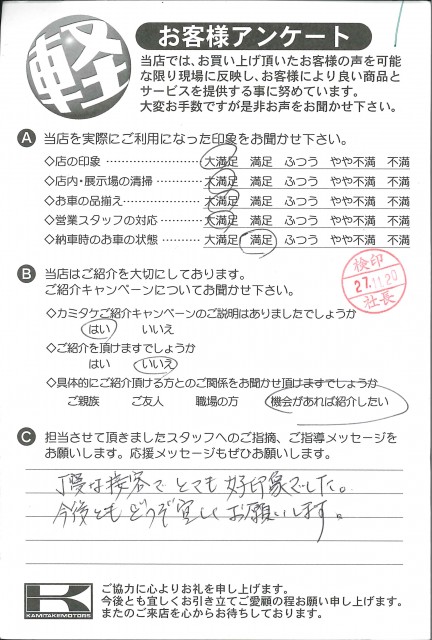 軽
お客様アンケート
当店では、お買い上げ頂いたお客様の声を可能
な限り現場に反映し、お客様により良い商品と
サービスを提供する事に努めています。
大変お手数ですが是非お声をお聞かせ下さい。
A 当店を実際にご利用になった印象をお聞かせ下さい。
◇店の印象 ………………… 大満足 満足 ふつう やや不満 不満
◇店内・展示場の清掃 ………… 大満足 満足 ふつう やや不満 不満
◇お車の品揃え ……………… 大満足 満足 ふつう やや不満 不満
◇営業スタッフの対応 ………… 大満足 満足 ふつう やや不満 不満
◇納車時のお車の状態 ………… 大満足 満足 ふつう やや不満 不満
B 当店はご紹介を大切にしてあります。
ご紹介キャンペーンについてお聞かせ下さい。
検印
27.11.20
社長
◇カミタケご紹介キャンペーンのご説明はありましたでしょうか
はい いいえ
◇ご紹介を頂けますでしょうか
はい いいえ
◇具体的にご紹介頂ける方とのご関係をお聞かせ頂けますでしょうか
ご親族 ご友人 職場の方 機会があれば紹介したい
C 担当させて頂きましたスタッフへのご指摘、ご指導メッセージを
お願いします。応援メッセージもぜひお願いします。
丁寧な接客で とても 好印象でした。
今後とも どうぞ宜しく お願いします。
KAMITAKEMOTORS
ご協力に心よりお礼を申し上げます。
今後とも宜しくお引き立てご愛顧の程お願い申し上げます。
またのご来店を心からお待ちしております。